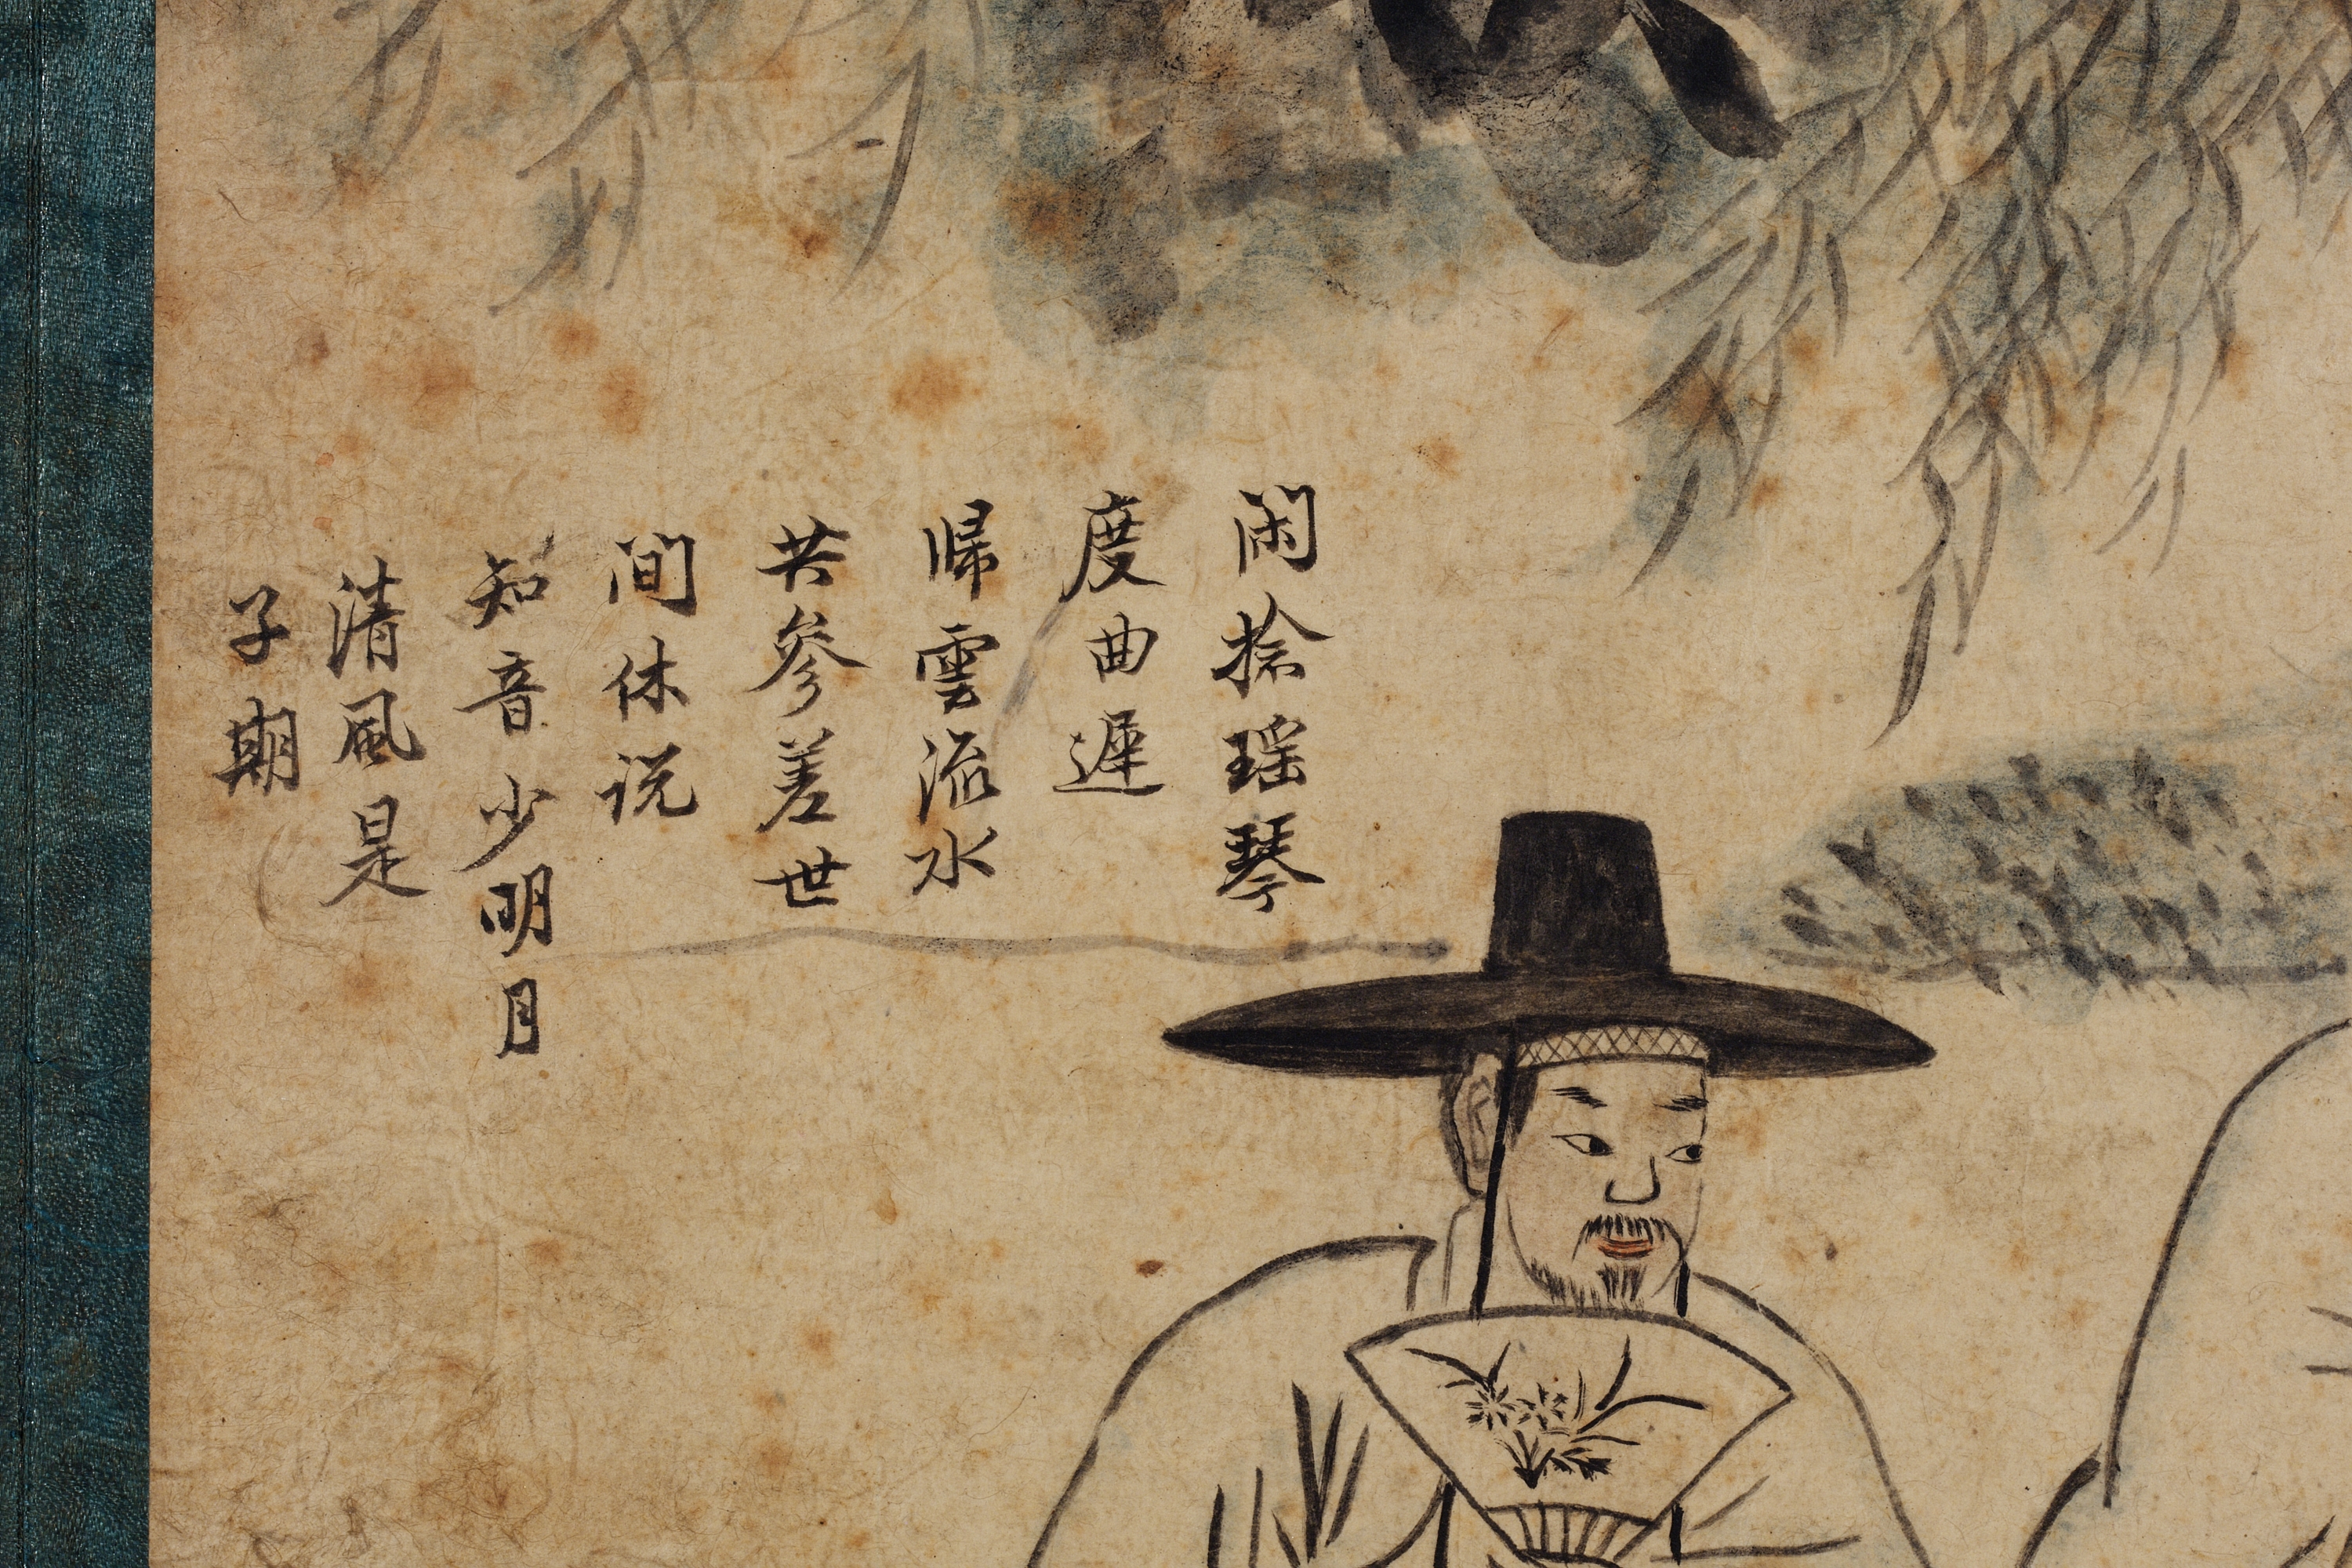 闲捻瑶琴
度曲遲
帰雲流水
共參差世
间休説
知音少明月
清風是
子期